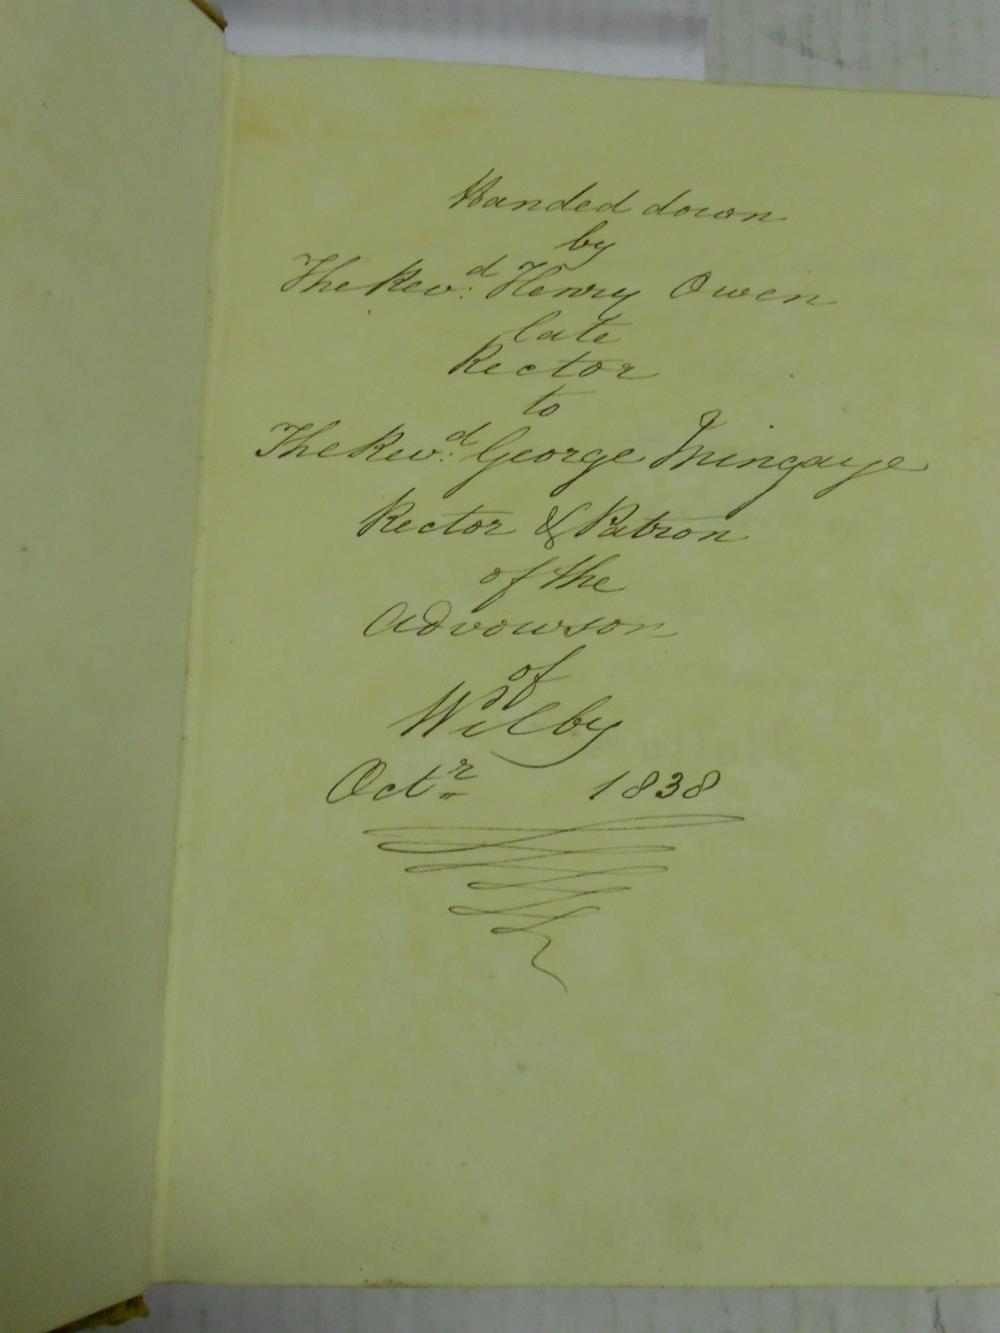 Handed down
by
The Revd. Henry Owen
late
Rector
to
The Revd. George Mingaye
Rector & Patron
of the
Advowson
of
Wilby
Octr 1838